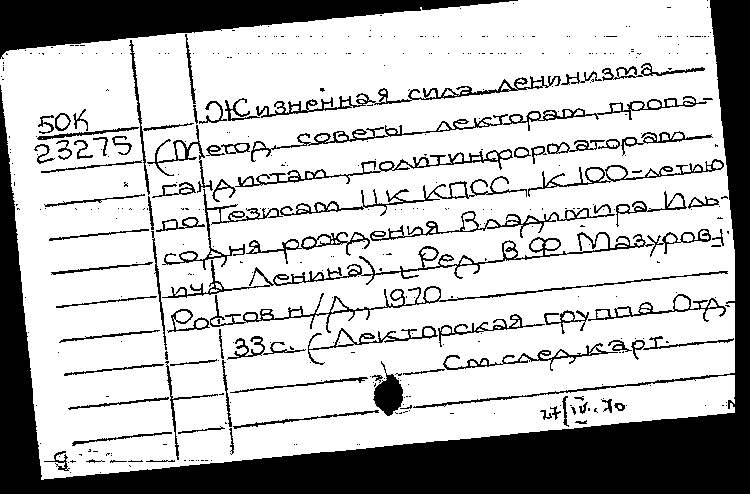 50К
23275
Жизненная сила ленинизма
(Метод. советы лекторам, пропа-
гандистам, политинформаторам
по Тезисам ЦК КПСС „К 100-летию
со дня рождения Владимира Иль-
ича Ленина). [Ред. В.Ф. Мазуров].
Ростов н/Д., 1970.
33 с. (Лекторская группа Отд-
См. след. карт.
27/IV.-70